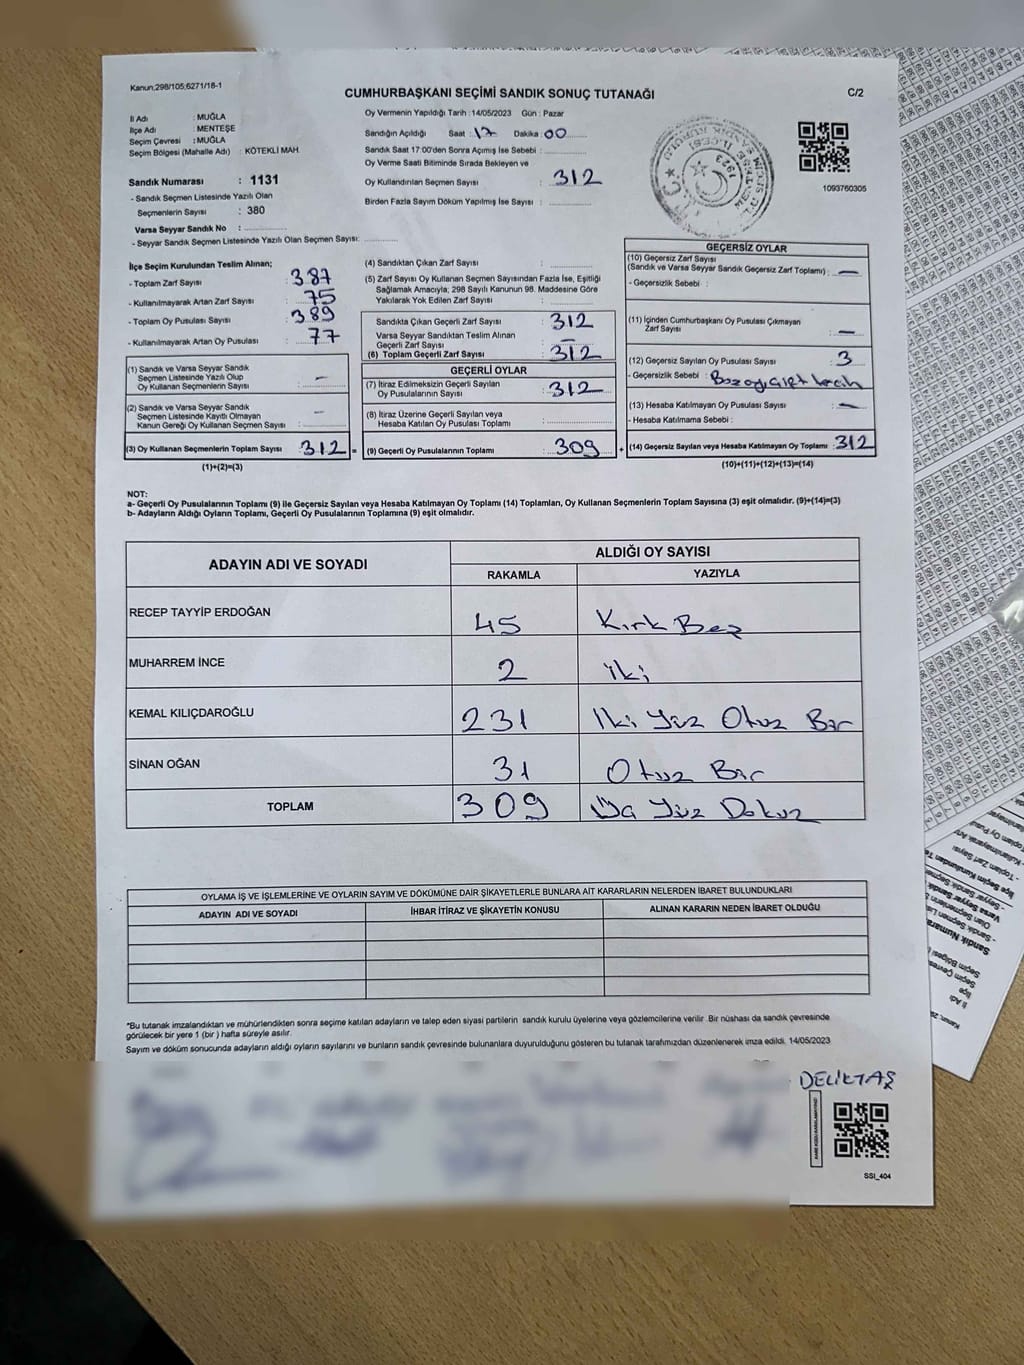 Kanun;298/105;6271/18-1
CUMHURBAŞKANI SEÇİMİ SANDIK SONUÇ TUTANAĞI
C/2
İl Adı : MUĞLA
İlçe Adı : MENTEŞE
Seçim Çevresi : MUĞLA
Seçim Bölgesi (Mahalle Adı) : KÖTEKLİ MAH.
Sandık Numarası : 1131
- Sandık Seçmen Listesinde Yazılı Olan
Seçmenlerin Sayısı : 380
Varsa Seyyar Sandık No :
- Seyyar Sandık Seçmen Listesinde Yazılı Olan Seçmen Sayısı:
Oy Vermenin Yapıldığı Tarih : 14/05/2023 Gün : Pazar
Sandığın Açıldığı Saat : 17 Dakika : 00
Sandık Saat 17:00'den Sonra Açılmış İse Sebebi :
Oy Verme Saati Bitiminde Sırada Bekleyen ve
Oy Kullandırılan Seçmen Sayısı : 312
Birden Fazla Sayım Döküm Yapılmış İse Sayısı :
1093760305
İlçe Seçim Kurulundan Teslim Alınan;
- Toplam Zarf Sayısı : 387
- Kullanılmayarak Artan Zarf Sayısı : 75
- Toplam Oy Pusulası Sayısı : 389
- Kullanılmayarak Artan Oy Pusulası : 77
(1) Sandık ve Varsa Seyyar Sandık
Seçmen Listesinde Yazılı Olup
Oy Kullanan Seçmenlerin Sayısı : -
(2) Sandık ve Varsa Seyyar Sandık
Seçmen Listesinde Kayıtlı Olmayan
Kanun Gereği Oy Kullanan Seçmen Sayısı : -
(3) Oy Kullanan Seçmenlerin Toplam Sayısı : 312 =
(1)+(2)=(3)
(4) Sandıktan Çıkan Zarf Sayısı :
(5) Zarf Sayısı Oy Kullanan Seçmen Sayısından Fazla İse, Eşitliği
Sağlamak Amacıyla; 298 Sayılı Kanunun 98. Maddesine Göre
Yakılarak Yok Edilen Zarf Sayısı :
Sandıkta Çıkan Geçerli Zarf Sayısı : 312
Varsa Seyyar Sandıktan Teslim Alınan
Geçerli Zarf Sayısı : -
(6) Toplam Geçerli Zarf Sayısı : 312
GEÇERLİ OYLAR
(7) İtiraz Edilmeksizin Geçerli Sayılan
Oy Pusulalarının Sayısı : 312
(8) İtiraz Üzerine Geçerli Sayılan veya
Hesaba Katılan Oy Pusulası Toplamı :
(9) Geçerli Oy Pusulalarının Toplamı : 309 +
GEÇERSİZ OYLAR
(10) Geçersiz Zarf Sayısı
(Sandık ve Varsa Seyyar Sandık Geçersiz Zarf Toplamı) : -
- Geçersizlik Sebebi :
(11) İçinden Cumhurbaşkanı Oy Pusulası Çıkmayan
Zarf Sayısı : -
(12) Geçersiz Sayılan Oy Pusulası Sayısı : 3
- Geçersizlik Sebebi :
(13) Hesaba Katılmayan Oy Pusulası Sayısı : -
- Hesaba Katılmama Sebebi :
(14) Geçersiz Sayılan veya Hesaba Katılmayan Oy Toplamı : 312
(10)+(11)+(12)+(13)=(14)
NOT:
a- Geçerli Oy Pusulalarının Toplamı (9) ile Geçersiz Sayılan veya Hesaba Katılmayan Oy Toplamı (14) Toplamları, Oy Kullanan Seçmenlerin Toplam Sayısına (3) eşit olmalıdır. (9)+(14)=(3)
b- Adayların Aldığı Oyların Toplamı, Geçerli Oy Pusulalarının Toplamına (9) eşit olmalıdır.
ADAYIN ADI VE SOYADI ALDIĞI OY SAYISI
RAKAMLA YAZIYLA
RECEP TAYYİP ERDOĞAN 45 Kırk Beş
MUHARREM İNCE 2 İki
KEMAL KILIÇDAROĞLU 231 İki Yüz Otuz Bir
SİNAN OĞAN 31 Otuz Bir
TOPLAM 309 Üç Yüz Dokuz
OYLAMA İŞ VE İŞLEMLERİNE VE OYLARIN SAYIM VE DÖKÜMÜNE DAİR ŞİKAYETLERLE BUNLARA AİT KARARLARIN NELERDEN İBARET BULUNDUKLARI
ADAYIN ADI VE SOYADI İHBAR İTİRAZ VE ŞİKAYETİN KONUSU ALINAN KARARIN NEDEN İBARET OLDUĞU
*Bu tutanak imzalandıktan ve mühürlendikten sonra seçime katılan adayların ve talep eden siyasi partilerin sandık kurulu üyelerine veya gözlemcilerine verilir. Bir nüshası da sandık çevresinde
görülecek bir yere 1 (bir) hafta süreyle asılır.
Sayım ve döküm sonucunda adayların aldığı oyların sayılarını ve bunların sandık çevresinde bulunanlara duyurulduğunu gösteren bu tutanak tarafımızdan düzenlenerek imza edildi. 14/05/2023
DELİKTAŞ
SSI_404